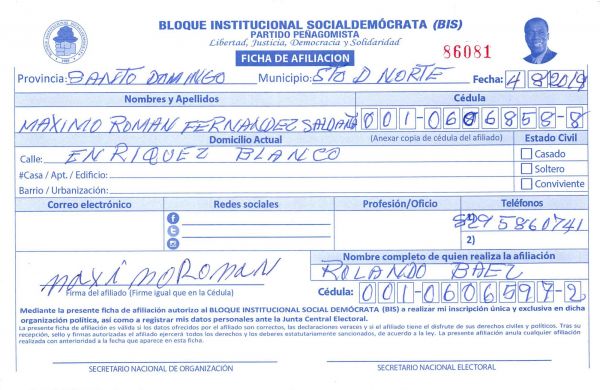 BLOQUE INSTITUCIONAL SOCIALDEMÓCRATA (BIS)
PARTIDO PEÑAGOMISTA
Libertad, Justicia, Democracia y Solidaridad
FICHA DE AFILIACION
86081
Provincia: SANTO DOMINGO Municipio: STO D NORTE Fecha: 4/8/2019
Nombres y Apellidos Cédula
MAXIMO ROMAN FERNANDEZ SALDAÑA 001-0606858-8
Domicilio Actual (Anexar copia de cédula del afiliado) Estado Civil
Calle: ENRIQUEZ BLANCO Casado
#Casa / Apt. / Edificio: Soltero
Barrio / Urbanización: Conviviente
Correo electrónico Redes sociales Profesión/Oficio Teléfonos
1) 829 5860741
2)
MAXIMO ROMAN
Firma del afiliado (Firme igual que en la Cédula)
Nombre completo de quien realiza la afiliación
ROLANDO BAEZ
Cédula: 001-0606597-2
Mediante la presente ficha de afiliación autorizo al BLOQUE INSTITUCIONAL SOCIAL DEMÓCRATA (BIS) a realizar mi inscripción única y exclusiva en dicha
organización política, así como a registrar mis datos personales ante la Junta Central Electoral.
La presente ficha de afiliación es válida si los datos ofrecidos por el afiliado son correctos, las declaraciones veraces y si el afiliado tiene el disfrute de sus derechos civiles y políticos. Tras su
recepción, sello y firmas autorizadas el afiliado ejercerá todos los derechos y los deberes estatutariamente sancionados, de acuerdo a la ley. La presente afiliación anula cualquier afiliación
realizada con anterioridad a la fecha que aparece en esta ficha.
SECRETARIO NACIONAL DE ORGANIZACIÓN SECRETARIO NACIONAL ELECTORAL